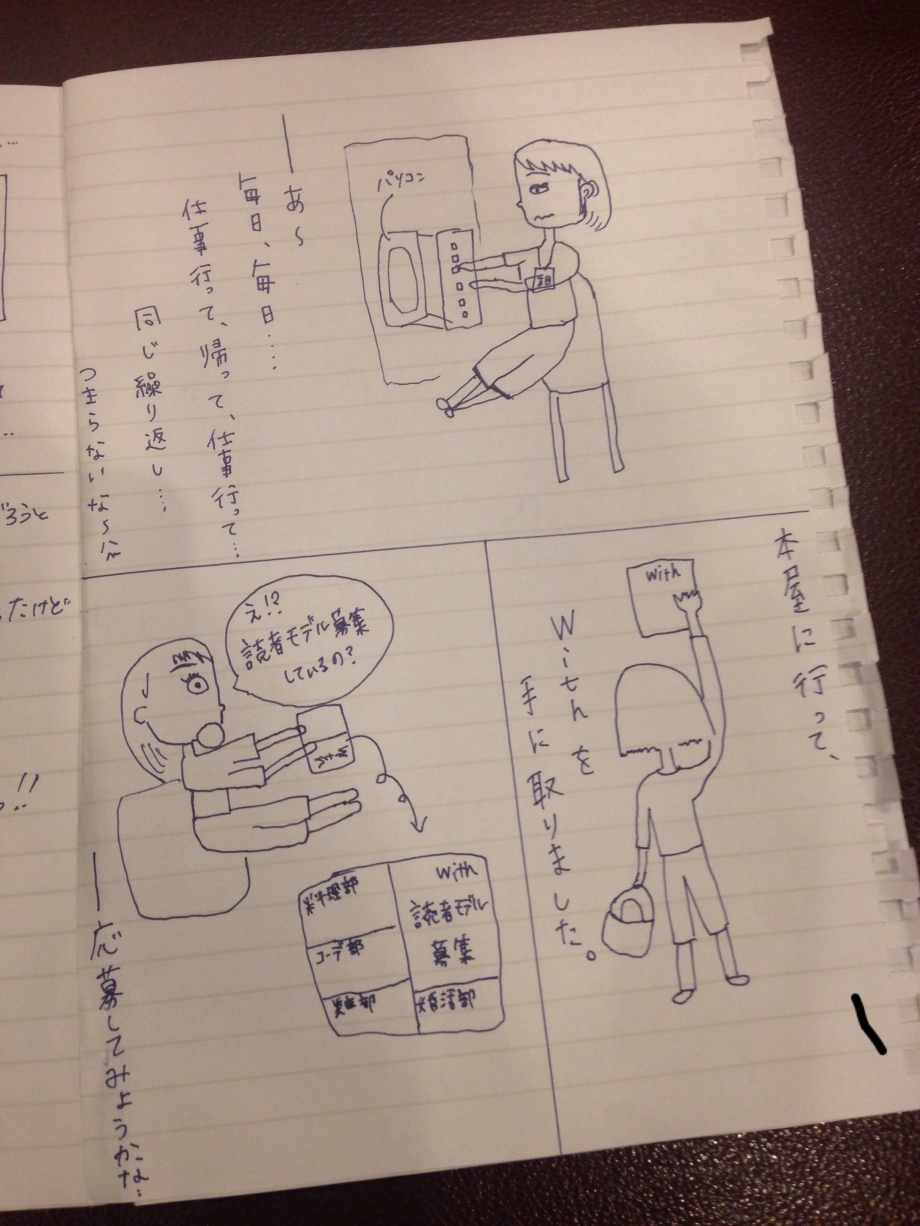 パソコン
あ〜
毎日、毎日‥‥
仕事行って、帰って、仕事行って…
同じ繰り返し…
つまらないな〜
本屋に行って、
with
Withを
手に取りました。
え!?
読者モデル募集
しているの?
with
読者モデル
募集
料理部
コーデ部
婚活部
応募してみようかな‥
ろうと
たけど
!!